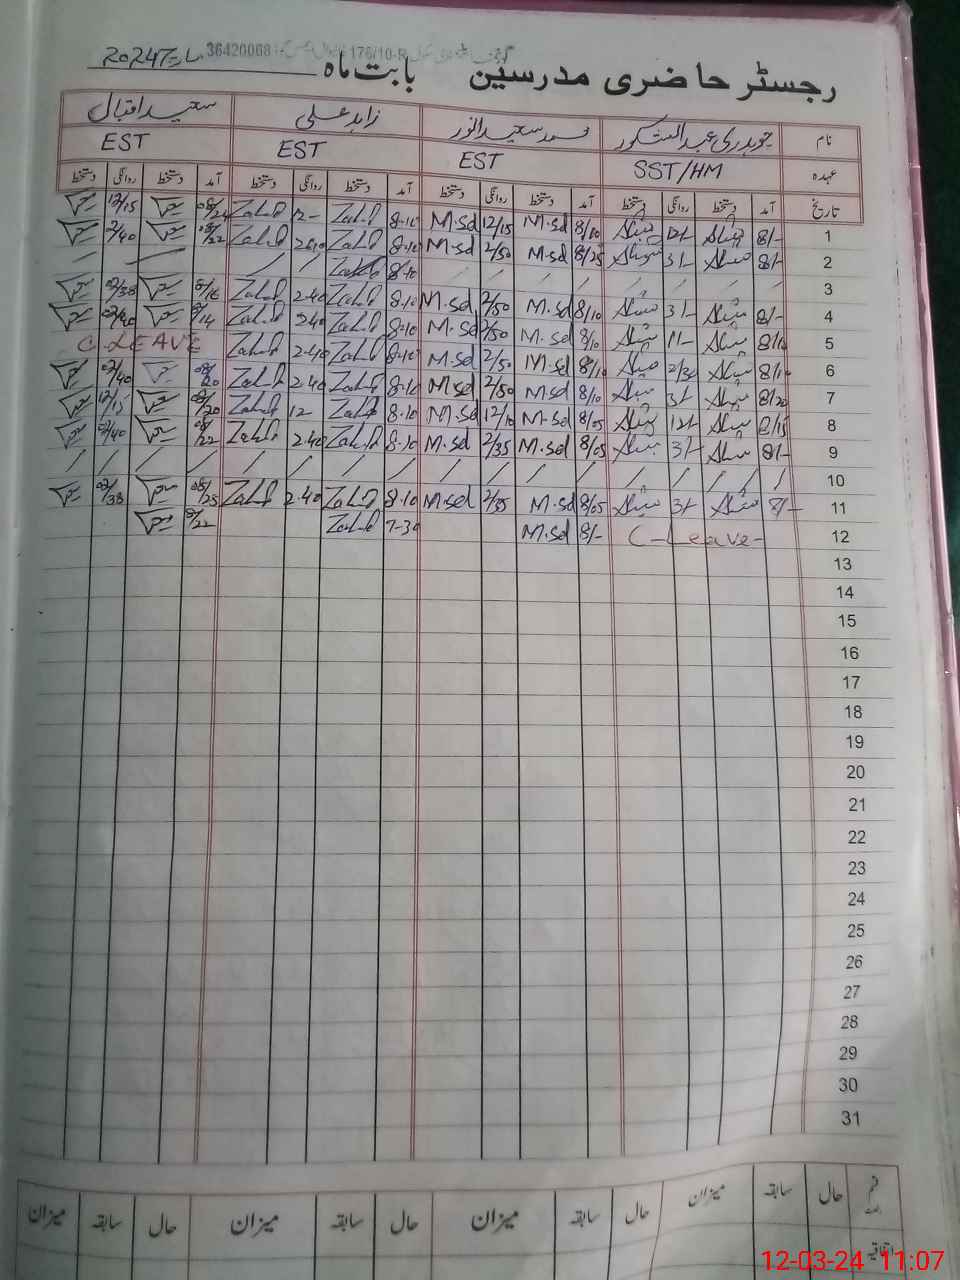 36420068
رجسٹر حاضری مدرسین بابت ماہ مارچ 2024
نام چوہدری عبدالشکور محمد سعید انور زاہد علی سعید اقبال
عہدہ SST/HM EST EST EST
تاریخ آمد دستخط روانگی دستخط آمد دستخط روانگی دستخط آمد دستخط روانگی دستخط آمد دستخط روانگی دستخط
1 8/- 12/- 8/10 M.sd 12/15 M.sd 8-10 Zahid 12- Zahid 08/24 12/15
2 8/- 3/- 8/25 M.sd 2/50 M.sd 8-10 Zahid Zahid 08/22 2/40
3 8-10 Zahid / / / /
4 8/- 3/- 8/10 M.sd 2/50 M.sd 8-10 Zahid 2-40 Zahid 8/16 02/38
5 8/10 11/- 8/10 M.sd 2/50 M.sd 8-10 Zahid 240 Zahid 8/14 02/40
6 8/10 2/30 8/10 M.sd 2/50 M.sd 8-10 Zahid 2-40 Zahid C.LEAVE
7 8/20 3/- 8/10 M.sd 2/50 M.sd 8-10 Zahid 2.40 Zahid 08/20 02/40
8 8/15 12/- 8/05 M-sd 12/10 M.sd 8-10 Zahid 12- Zahid 08/20 12/15
9 8/- 3/- 8/05 M.sd 2/35 M.sd 8-10 Zahid 2.40 Zahid 08/22 02/40
10 / / / / / / / / / / / / / / / /
11 8/- 3/- 8/05 M.sd 2/35 M.sd 8-10 Zahid 2-40 Zahid 08/25 02/38
12 C-Leave- 8/- M.sd 7-30 Zahid 8/22
13
14
15
16
17
18
19
20
21
22
23
24
25
26
27
28
29
30
31
حال سابقہ میزان حال سابقہ میزان حال سابقہ میزان حال سابقہ میزان
اتفاقیہ
12-03-24 11:07